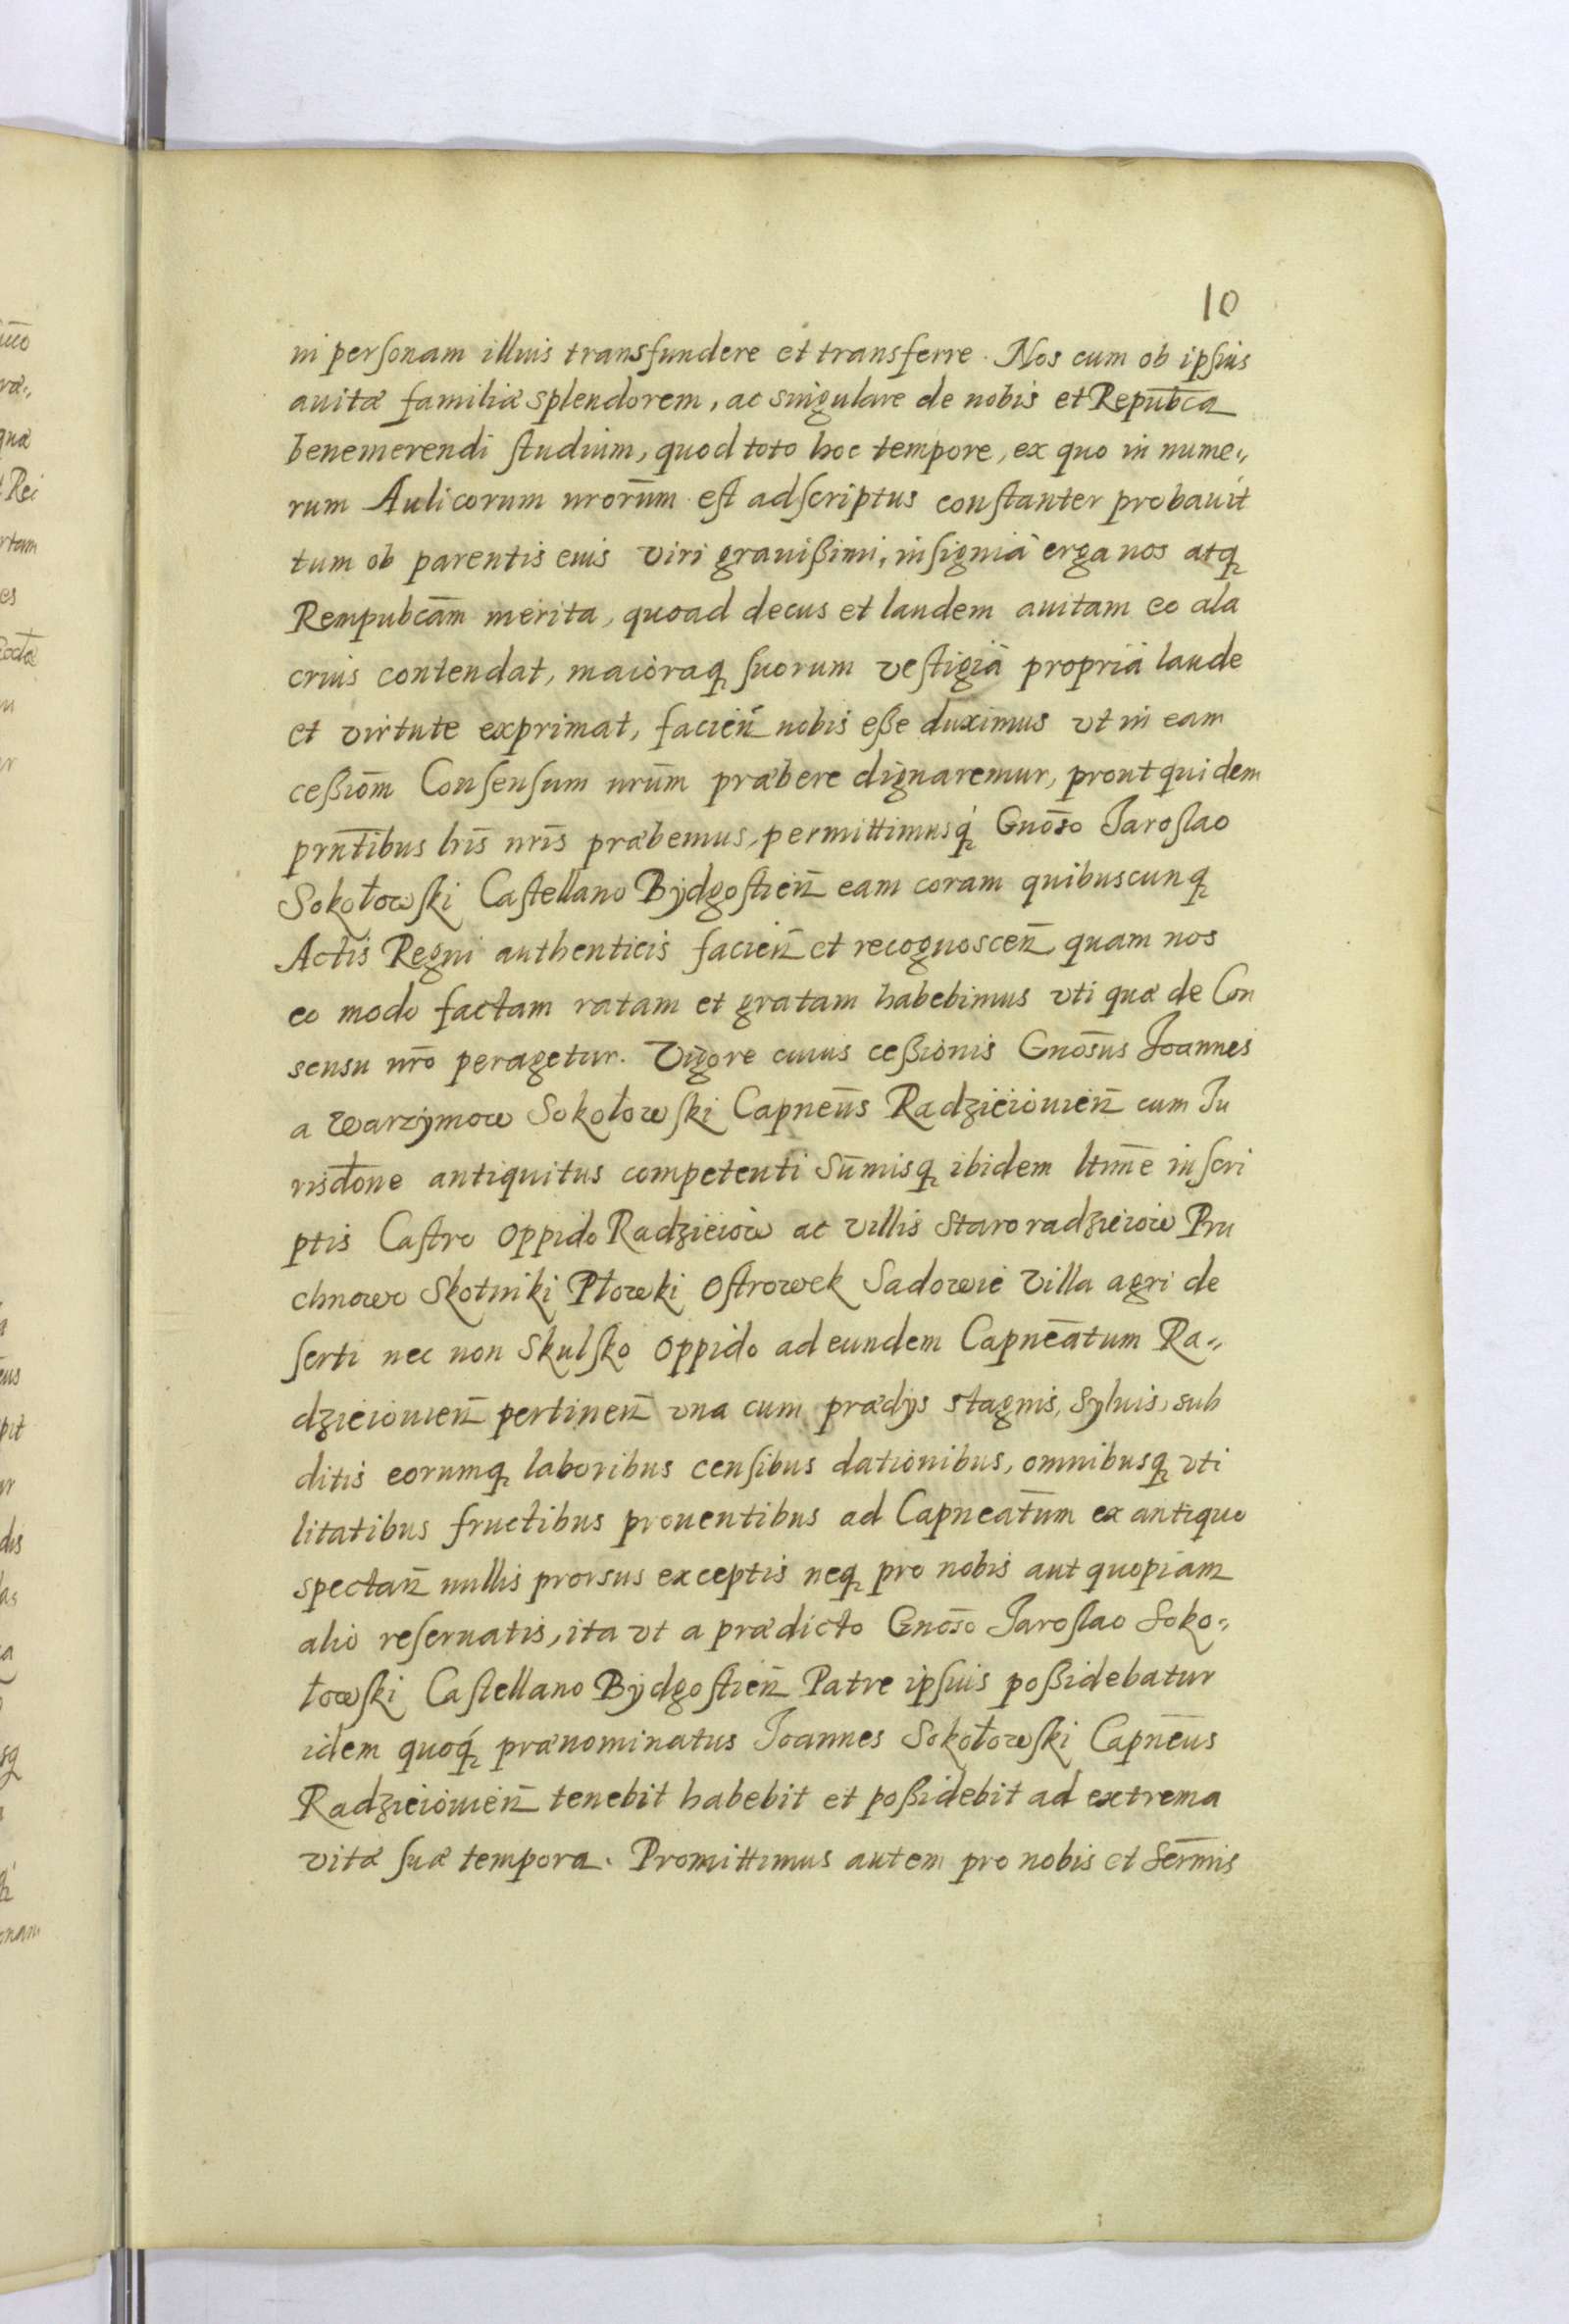 10
in personam illius transfundere et transferre. Nos cum ob ipsius
auitæ familiæ splendorem, ac singulare de nobis et Repub̄ca
benemerendi studium, quod toto hoc tempore, ex quo in nume„
rum Aulicorum nrorūm est adscriptus constanter probauit
tum ob parentis eius viri grauißimi, insignia erga nos atq
Rempubcām merita, quo ad decus et laudem auitam eo ala
crius contendat, maioraq suorum vestigia propria laude
et virtute exprimat, facien̄ nobis eße duximus vt in eam
ceßiōm Consensum nrūm præbere dignaremur, prout quidem
prn̄tibus lrīs nrīs præbemus, permittimusq Gnōso Jaroslao
Sokołowski Castellano Bÿdgostien̄ eam coram quibuscunq
Actis Regni authenticis facien̄ et recognoscen̄ quam nos
eo modo factam ratam et gratam habebimus vti quæ de Con
sensu nrō peragetur. Vigore cuius ceßionis Gnōsus Joannes
a Warzÿmow Sokołowski Capneūs Radzieiouien̄ cum Ju
risdtōne antiquitus competenti Sum̄misq ibidem ltīme inscri
ptis Castro Oppido Radzieiow ac villis Staroradzieiow Pru
chnowo Skotniki Płowki Ostrowek Sadowie Villa agri de
serti nec non Skulsko Oppido ad eundem Capneātum Ra„
dzieiouien̄ pertinen̄ vna cum prædÿs stagnis, Syluis, sub
ditis eorumq laboribus censibus dationibus, omnibusq vti
litatibus fructibus prouentibus ad Capneātum ex antiquo
spectan̄ nullis prorsus exceptis neq pro nobis aut quopiam
alio reseruatis, ita vt a prædicto Gnōso Jaroslao Soko„
łowski Castellano Bÿdgostien̄ Patre ipsius poßidebatur
idem quoq prænominatus Joannes Sokołowski Capneūs
Radzieiouien̄ tenebit habebit et poßidebit ad extrema
vitæ suæ tempora. Promittimus autem pro nobis et Serm̄is